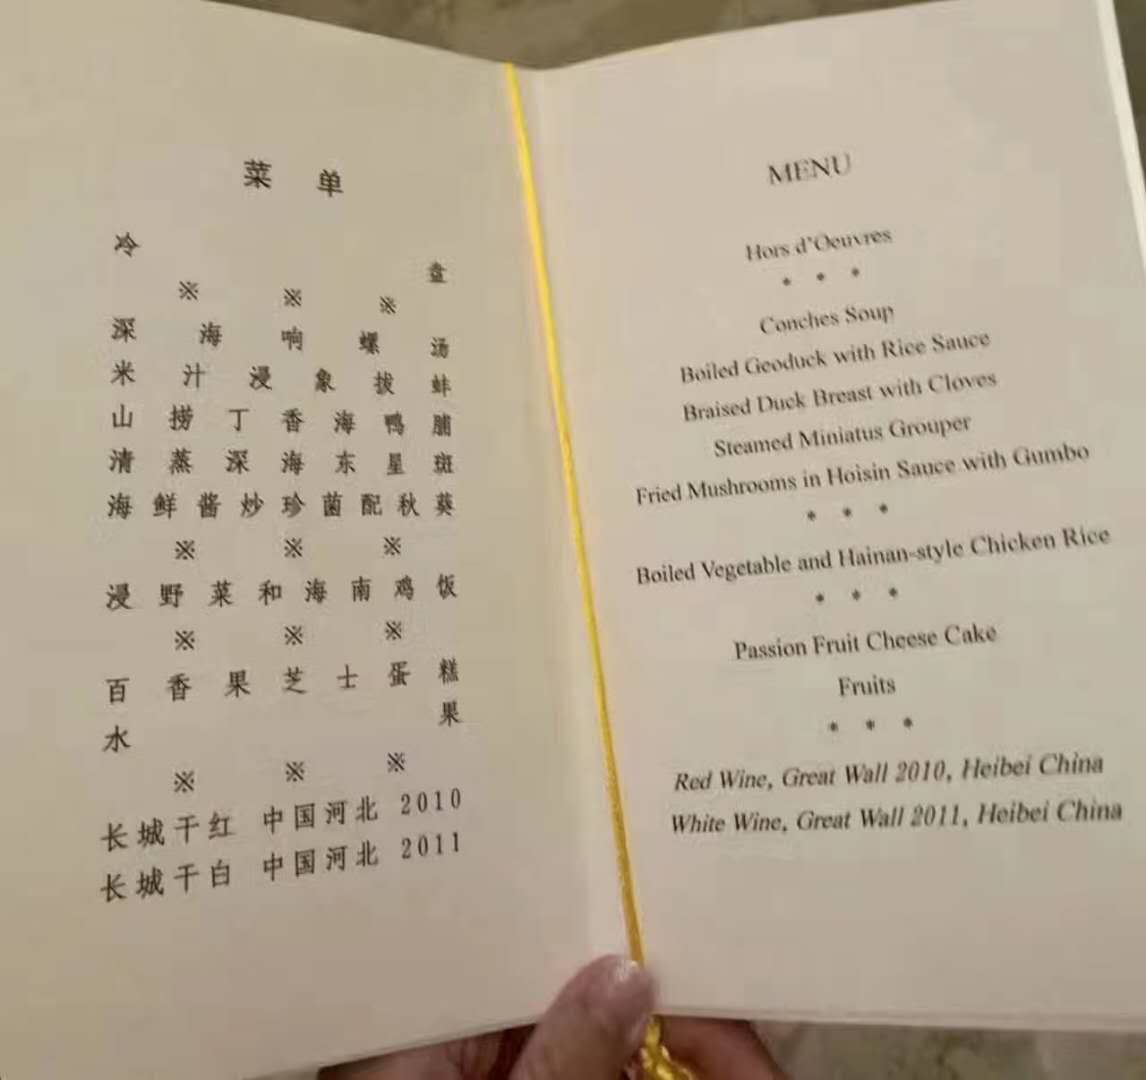 菜单
冷盘
※ ※ ※
深海响螺汤
米汁浸象拔蚌
山捞丁香海鸭脯
清蒸深海东星斑
海鲜酱炒珍菌配秋葵
※ ※ ※
浸野菜和海南鸡饭
※ ※ ※
百香果芝士蛋糕
水果
※ ※ ※
长城干红 中国河北 2010
长城干白 中国河北 2011
MENU
Hors d'Oeuvres
* * *
Conches Soup
Boiled Geoduck with Rice Sauce
Braised Duck Breast with Cloves
Steamed Miniatus Grouper
Fried Mushrooms in Hoisin Sauce with Gumbo
* * *
Boiled Vegetable and Hainan-style Chicken Rice
* * *
Passion Fruit Cheese Cake
Fruits
* * *
Red Wine, Great Wall 2010, Heibei China
White Wine, Great Wall 2011, Heibei China